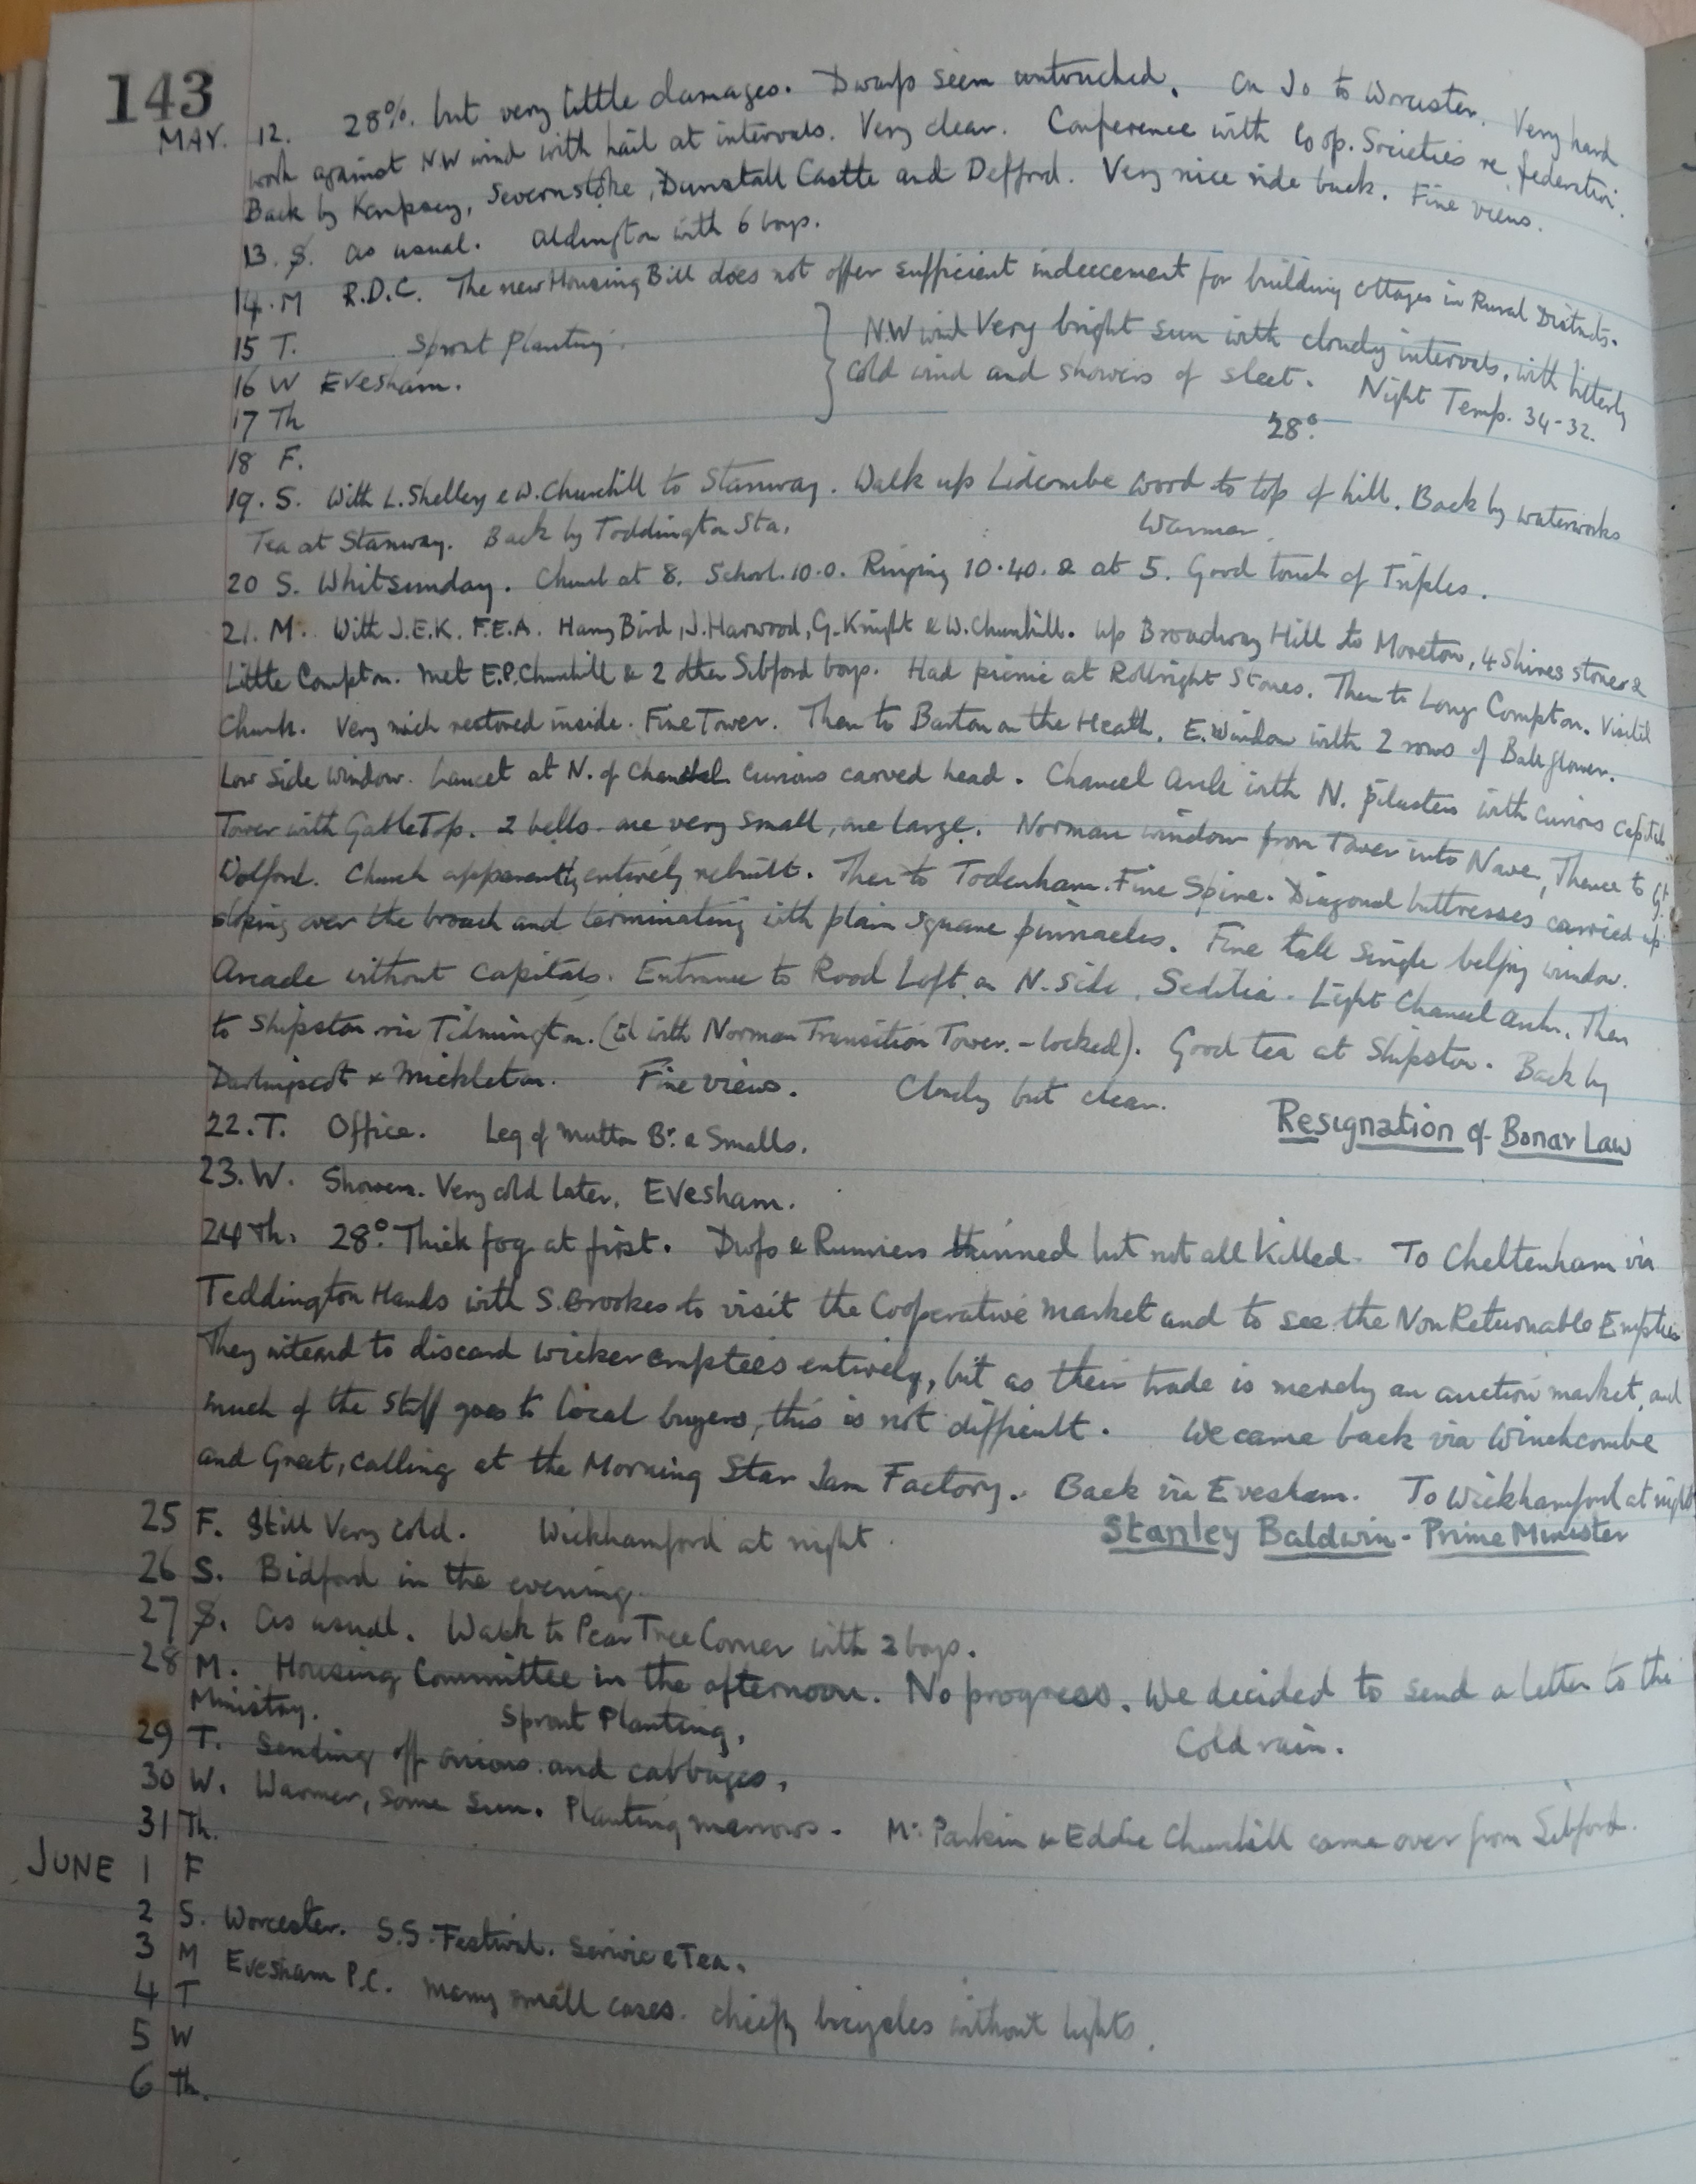 143
MAY. 12. 28%. but very little damages. Dwarfs seem untouched. On Jo to Worcester. Very hard
work against NW wind with hail at intervals. Very clear. Conference with Co op. Societies re federation.
Back by Kempsey, Severnstoke, Dunstall Castle and Defford. Very nice ride back. Fine views.
13. S. As usual. Aldington with 6 boys.
14. M R.D.C. The new Housing Bill does not offer sufficient inducement for building cottages in Rural Districts.
15 T. Sprout Planting. } N.W wind Very bright sun with cloudy intervals, with bitterly
16 W Evesham. cold wind and showers of sleet. Night Temp. 34-32.
17 Th 28°.
18 F.
19. S. With L. Shelley & W. Churchill to Stanway. Walk up Lidcombe Wood to top of hill. Back by waterworks
Tea at Stanway. Back by Toddington Sta. Warmer.
20 S. Whitsunday. Church at 8. School. 10.0. Ringing 10.40. & at 5. Good touch of Triples.
21. M. With J.E.K. F.E.A. Harry Bird, J. Harwood, G. Knight & W. Churchill. Up Broadway Hill to Moreton, 4 Shires stone &
Little Compton. Met E.P. Churchill & 2 other Sibford boys. Had picnic at Rollright Stones. Then to Long Compton. Visited
Church. Very much restored inside. Fine Tower. Then to Barton on the Heath. E. Window with 2 rows of Ball flower.
Low side window. Lancet at N. of Chancel. Curious carved head. Chancel Arch with N. pilasters with curious capitals.
Tower with Gable Top. 2 bells. one very small, one large. Norman window from Tower into Nave, Thence to Gt.
Wolford. Church apparently entirely rebuilt. Then to Todenham. Fine Spire. Diagonal buttresses carried up
sloping over the broach and terminating with plain square pinnacles. Fine tall single belfry window.
Arcade without capitals. Entrance to Rood Loft on N. Side. Sedilia. Light Chancel arch. Then
to Shipston via Tidmington. (Ch with Norman Transition Tower. - locked). Good tea at Shipston. Back by
Darlingscott & Mickleton. Fine views. Cloudy but clear.
22. T. Office. Leg of Mutton Br. & Smalls. Resignation of Bonar Law
23. W. Showers. Very cold later. Evesham.
24 Th. 28°. Thick fog at first. Dwfs & Runners thinned but not all killed. To Cheltenham via
Teddington Hands with S. Brookes to visit the Cooperative market and to see the Non Returnable Empties
They intend to discard wicker emptees entirely, but as their trade is merely an auction market, and
much of the stuff goes to local buyers, this is not difficult. We came back via Winchcombe
and Greet, calling at the Morning Star Jam Factory. Back via Evesham. To Wickhamford at night
25 F. Still Very cold. Wickhamford at night. Stanley Baldwin - Prime Minister
26 S. Bidford in the evening.
27 S. As usual. Walk to Pear Tree Corner with 2 boys.
28 M. Housing Committee in the afternoon. No progress. We decided to send a letter to the
Ministry. Sprout Planting. Cold rain.
29 T. Sending off onions and cabbages.
30 W. Warmer, some sun. Planting marrows. Mr Parkin & Eddie Churchill came over from Sibford.
31 Th.
JUNE 1 F
2 S. Worcester. S.S. Festival. Service & Tea.
3 M Evesham P.C. Many small cases. chiefly bicycles without lights.
4 T
5 W
6 Th.